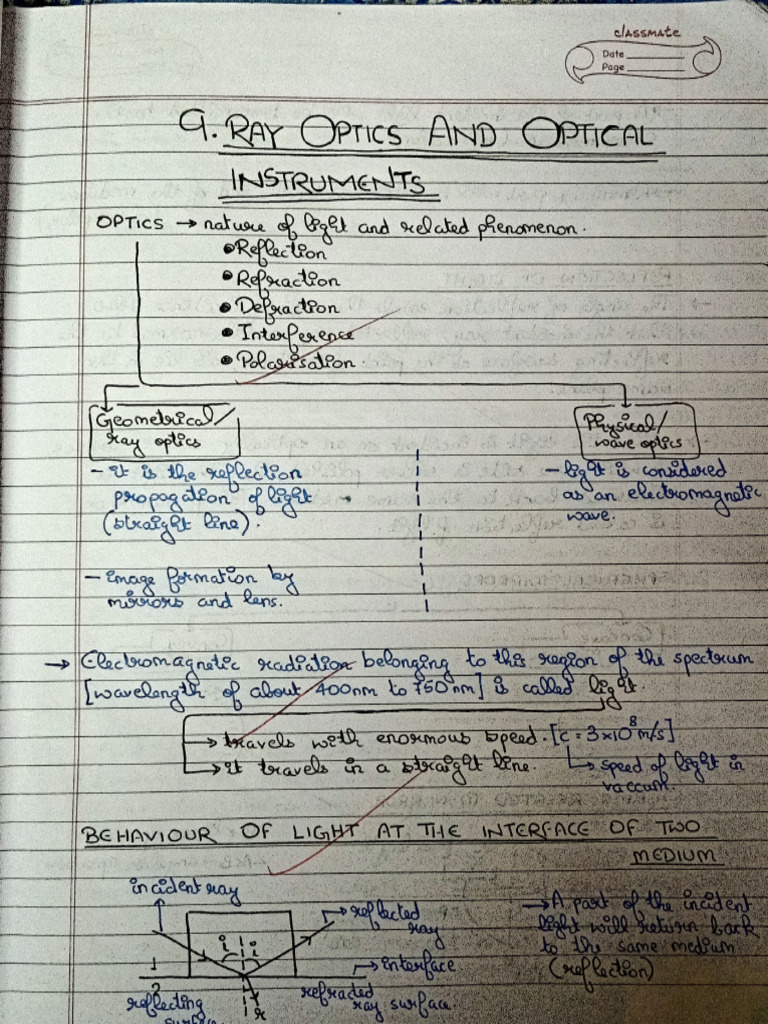 classmate
Date
Page
9. RAY OPTICS AND OPTICAL
INSTRUMENTS
OPTICS → nature of light and related phenomenon.
• Reflection
• Refraction
• Defraction
• Interference
• Polarisation.
Geometrical/
ray optics
Physical/
wave optics
- it is the reflection
propagation of light
(straight line).
- image formation by
mirrors and lens.
- light is considered
as an electromagnetic
wave.
→ Electromagnetic radiation belonging to this region of the spectrum
[wavelength of about 400nm to 750nm] is called light.
→ travels with enormous speed. [c = 3×10⁸ m/s]
→ it travels in a straight line.
→ speed of light in
vaccum.
BEHAVIOUR OF LIGHT AT THE INTERFACE OF TWO
MEDIUM
incident ray
→ reflected
ray
i i
1
→ interface
2
reflecting
surface
r
refracted
ray surface.
→ A part of the incident
light will return back
to the same medium
(reflection)